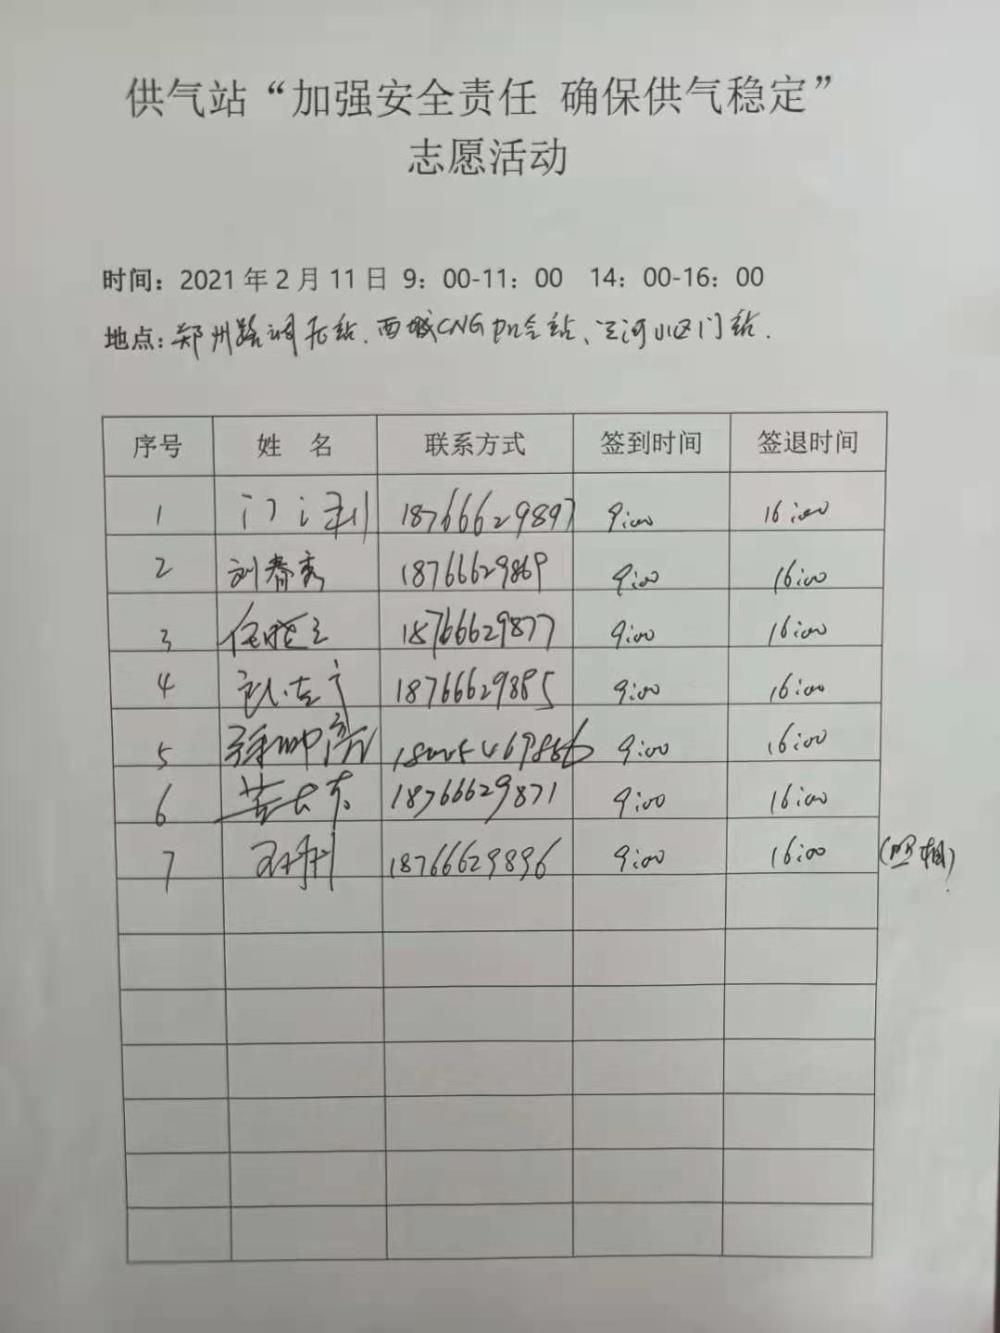 供气站“加强安全责任 确保供气稳定”
志愿活动
时间：2021年2月11日 9：00-11：00 14：00-16：00
地点：郑州路调压站、西城CNG加气站、三河小区门站.
序号 姓 名 联系方式 签到时间 签退时间
1 18766629897 9:00 16:00
2 刘春秀 18766629869 9:00 16:00
3 18766629877 9:00 16:00
4 18766629885 9:00 16:00
5 9:00 16:00
6 18766629871 9:00 16:00
7 18766629896 9:00 16:00 (照相)